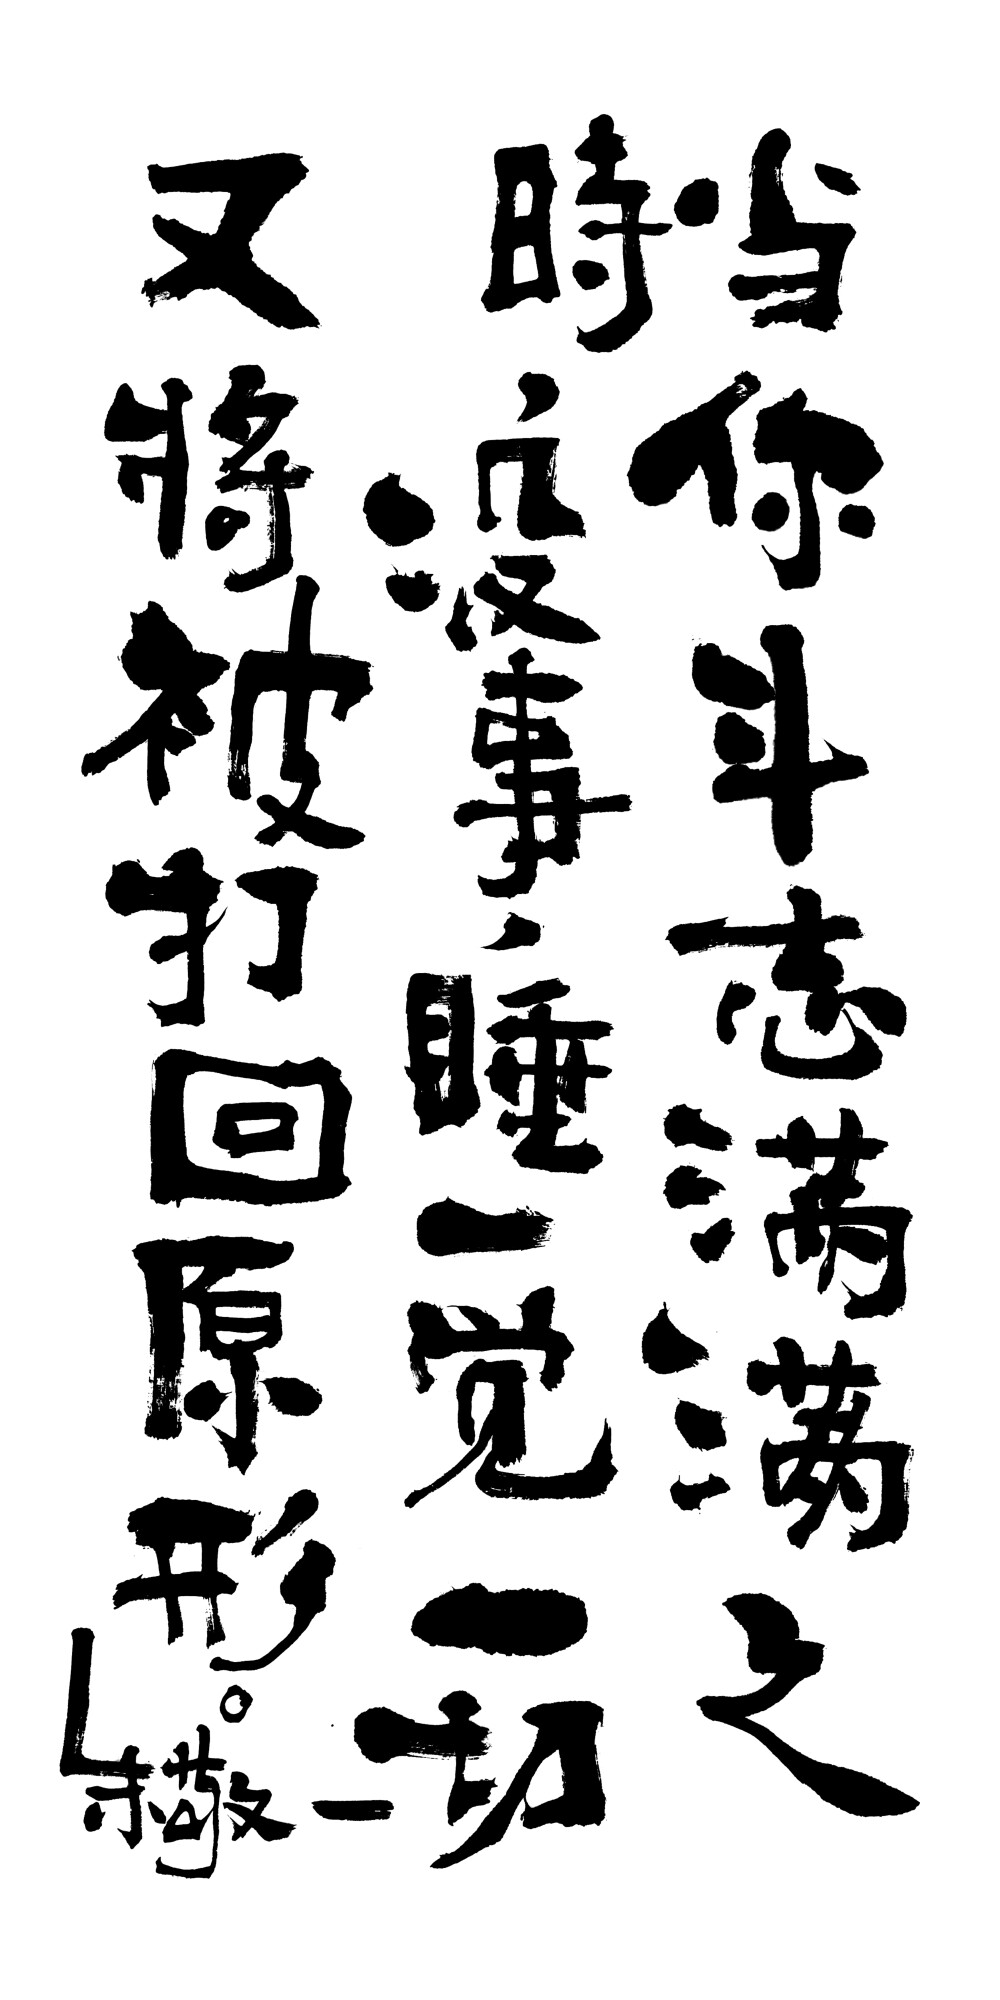 当你斗志满满之
時，没事，睡一觉一切
又將被打回原形。